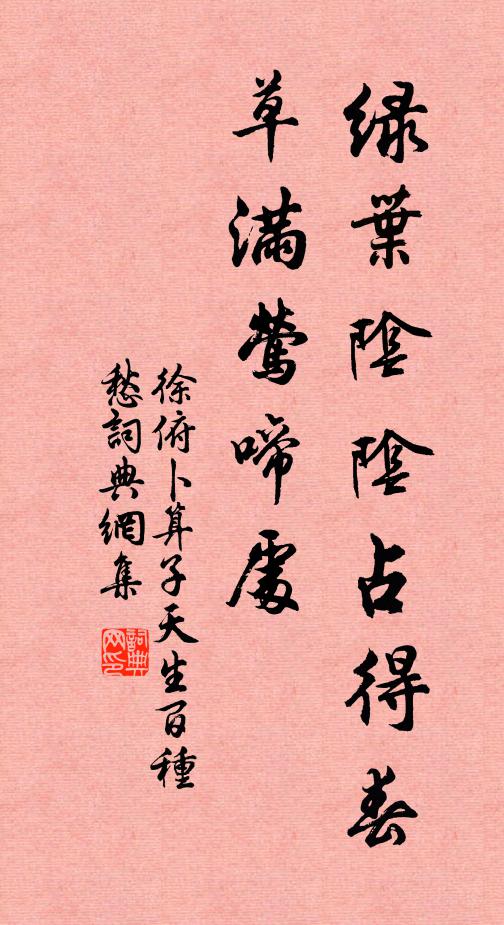 綠葉陰陰占得春
草滿鶯啼處
徐俯卜算子天生百種
愁詞典網集
詞典網印